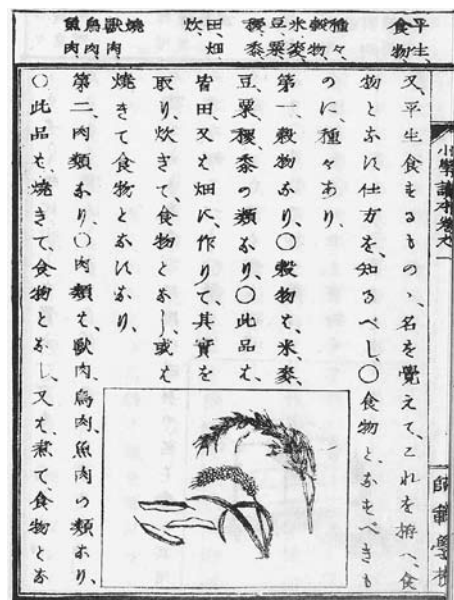 平生、
食物、
種々、
穀物、
米麥、
豆粟、
稷黍、
田、畑、
炊、
燒、
獸肉、
鳥肉、
魚肉、
小學讀本卷之一
師範學校
又、平生食するものゝ名を覺えて、これを拵へ、食
物となす仕方を、知るべし、〇食物となすべきも
のに、種々あり、
第一、穀物なり、〇穀物は、米、麥、
豆、粟、稷、黍の類なり、〇此品は、
皆田、又は畑に作りて、其實を
取り、炊きて食物となし、或は
燒きて食物となすなり、
第二、肉類なり、〇肉類は、獸肉、鳥肉、魚肉の類なり、
〇此品も燒きて、食物となし、又は、煮て、食物とな